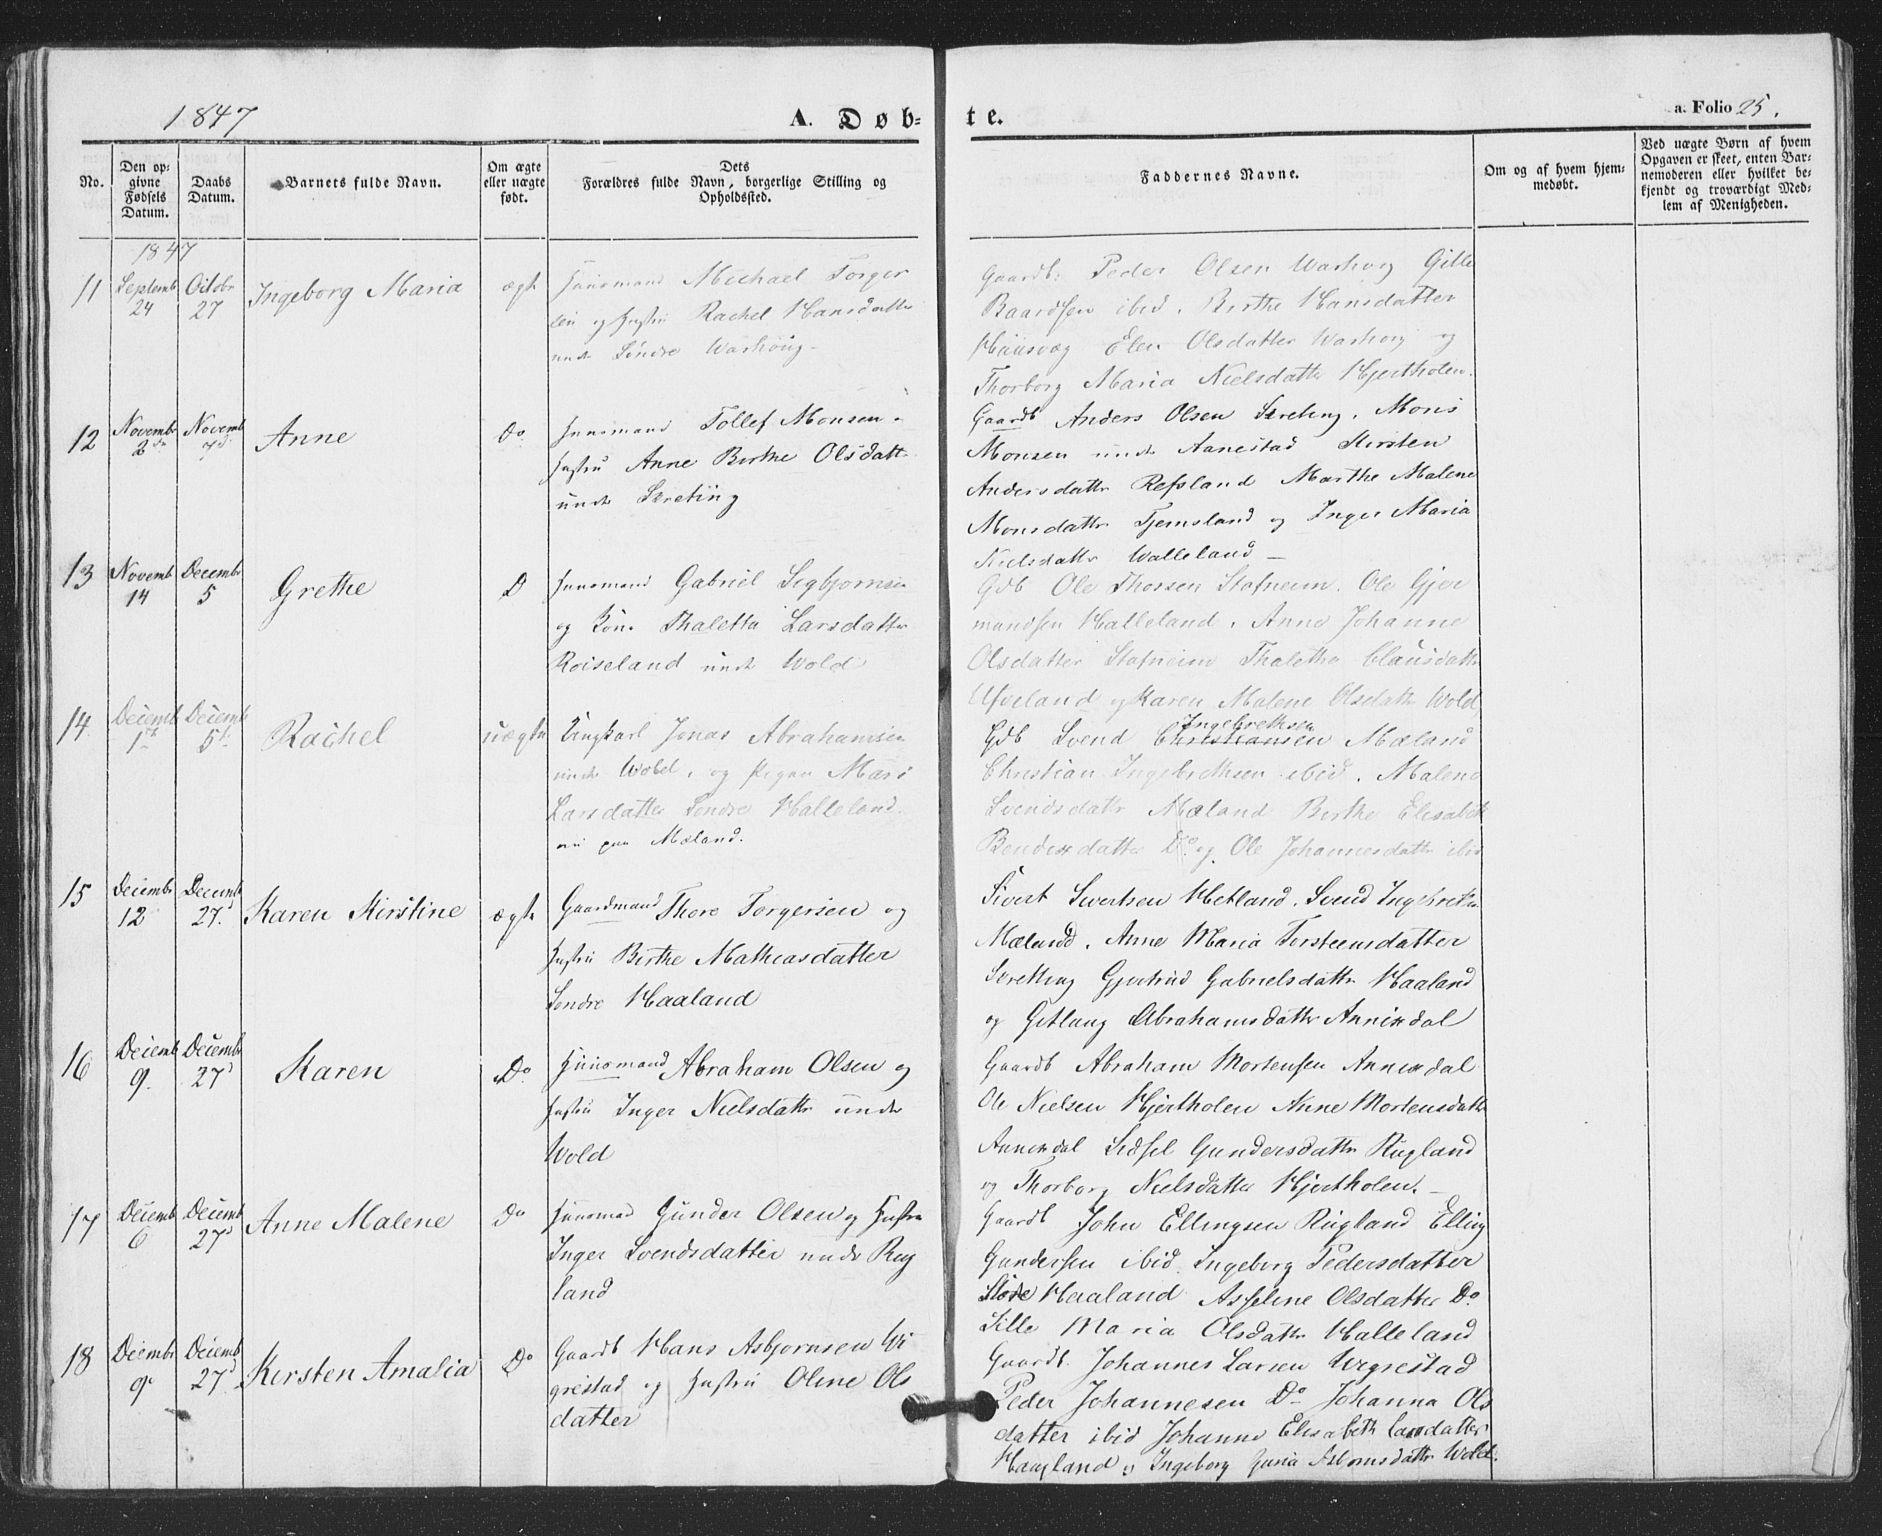 1847
A. Døb-
te.
a. Folio 25.
No.
Den op-
givne
Fødsels
Datum.
Daabs
Datum.
Barnets fulde Navn.
Om ægte
eller uægte
født.
Dets
Forældres fulde Navn, borgerlige Stilling og
Opholdssted.
Faddernes Navne.
Om og af hvem hjem-
medøbt.
Ved uægte Børn af hvem
Opgaven er skeet, enten Bar-
nemoderen eller hvilket be-
kjendt og troværdigt Med-
lem af Menigheden.
1847
11 Septemb 24 Octobr 27 Ingeborg Maria ægte
Huusmand Michael Torger
sen og Hustru Rachel Hansdatter
under Søndre Warhoug
Gaardb: Peder Olsen Warhoug Gitle
Baardsen ibid. Birthe Hansdatter
Elen Olsdatter Warhoug og
Thorborg Maria Nielsdatter Hjertholen.
12 Novembr 2den Novemb 7de Anne Do
Huusmand Tollef Monsen
Hustru Anne Birthe Olsdatt
under Skreting
Gaardb Anders Olsen Skreting. Mons
Monsen under Aanestad Kirsten
Andersdattr Refsland Marthe Malene
Monsdattr Tjemsland og Inger Maria
Nielsdattr Walleland
13 Novemb 14 Decembr 5 Grethe D
Huusmand Gabriel Segbjornsen
og Kone Thaletta Larsdatter
Roiseland under Wold
Gdb Ole Thorsen Stafneim. Ole Gjer
mundsen Halleland. Anne Johanne
Olsdatter Stafneim Thaletha Clausdattr
og Karen Malene Olsdattr Wold
14 Decemb 1ste Decemb 5te Rachel uægte
Ungkarl Jonas Abrahamsen
under Wold, og Pigen
Larsdatter Søndre Halleland.
nu paa Mæland.
Ingebrethsen
Gdb Svend Christiansen Mæland
Christian Ingebrethsen ibid. Malene
Svendsdattr Mæland Birthe Elisabeth
Bendixdatter Do og Ole Johannesdattr ibid
15 Decembr 12 Decemb 27d Karen Kirstine ægte
Gaardmand Thore Torgersen og
Hustru Birthe Mathiasdatter
Søndre Haaland
Sivert Sivertsen Hetland. Svend Ingebreths.
Mæland. Anne Maria Torsteensdatter
Skretting Gjertrud Gabrielsdattr Haaland
og Abrahamsdattr Annixdal
16 Decemb 9. Decembr 27d Karen Do
Huusmand Abraham Olsen og
Hustru Inger Nielsdattr under
Wold
Gaardb Abraham Mortensen Annixdal
Ole Nielsen Hjertholen Anne Mortensdattr
Annixdal Sidsel Gundersdattr Rugland
og Thorborg Nielsdatter Hjertholen.
17 Decemb 6 Decemb 27d Anne Malene Do
Huusmd Gunder Olsen og Hustru
Inger Svendsdatter under Rug
land
Gaardb John Ellingsen Rugland Elling
Gundersen ibid. Ingeborg Pedersdatter
Store Haaland Asseline Olsdatter Do
Sille Maria Olsdattr Halleland
18 Decembr 9 Decemb 27d Kirsten Amalia Do
Gaardb Hans Asbjornsen Wi
grestad og Hustru Oline Ols
datter
Gaardb. Johannes Larsen Wigrestad
Peder Johannesen Do Johanna Ols
datter ibid Johanne Elisabeth Larsdatter
Haugland og Ingeborg Guria Asbornsdattr Wold.